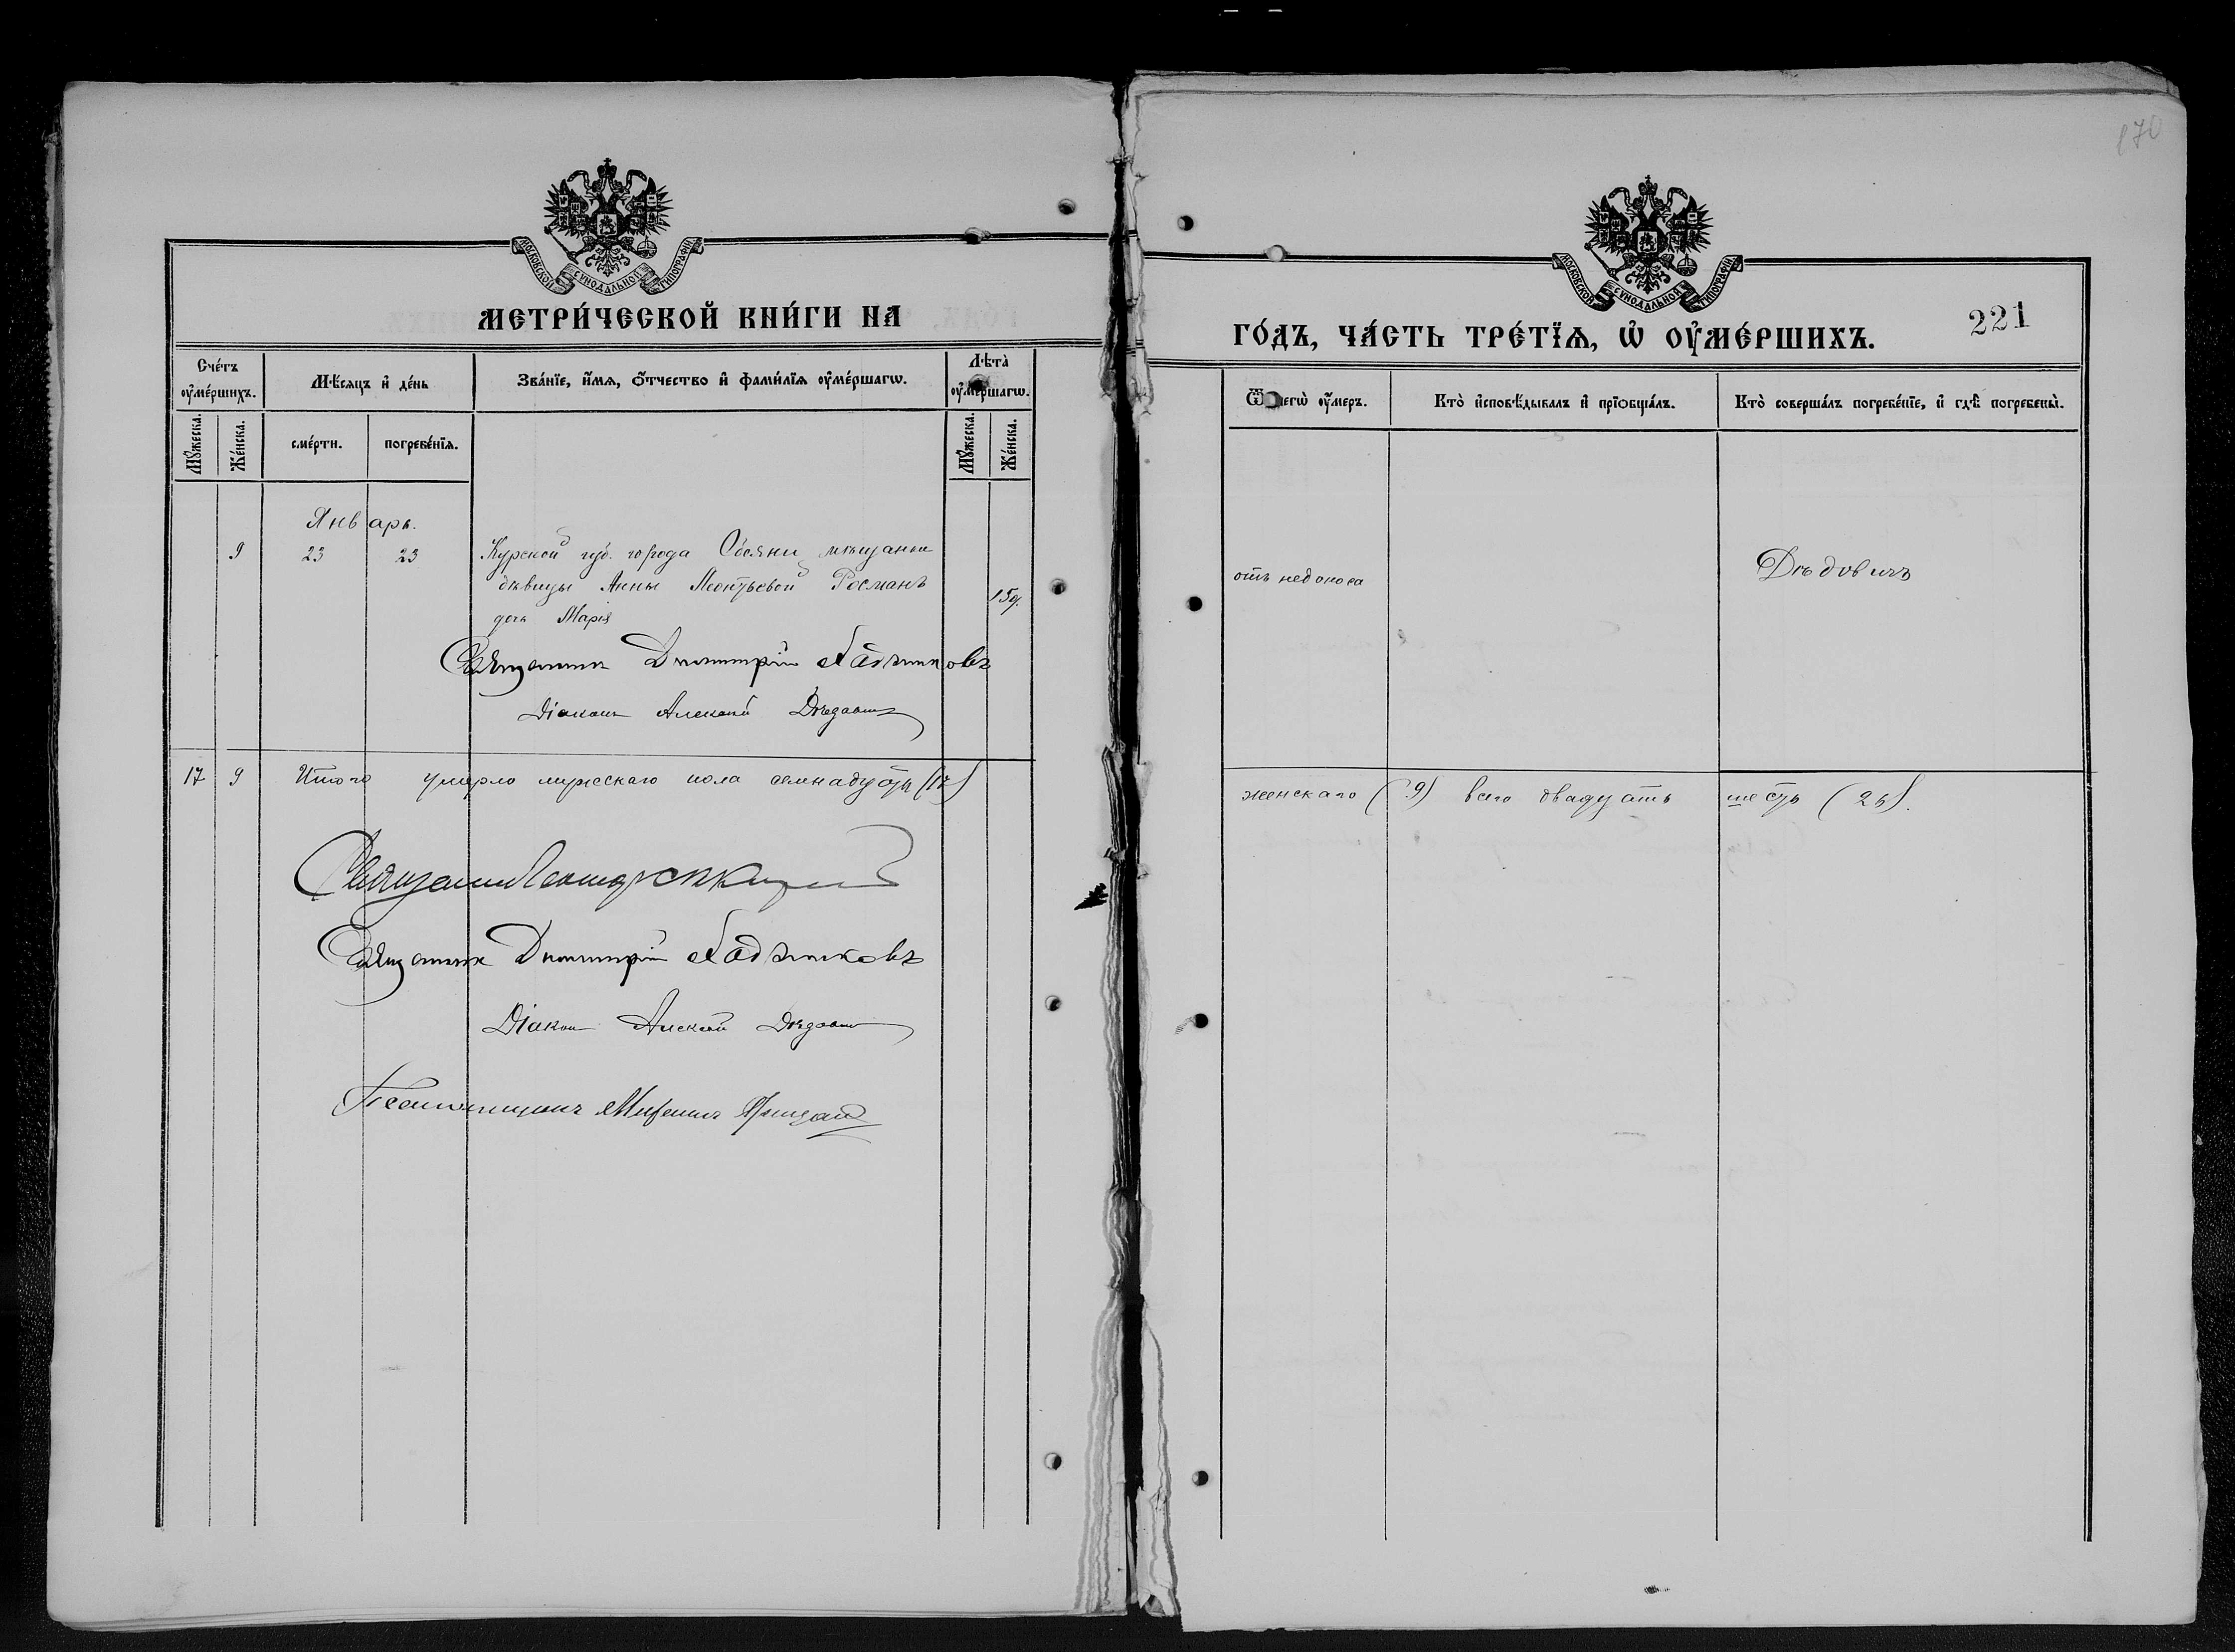 170
МОСКОВСКОЙ СѴНОДАЛЬНОЙ ТИПОГРАФІИ
МЕТРИ́ЧЕСКОЙ КНИ́ГИ НА
Сче́тъ оу҆ме́ршихъ.
Мѣ́сяцъ и҆ де́нь
Зва́нїе, и҆́мѧ, ѻ҆́тчество и҆ фами́лїѧ оу҆ме́ршагѡ.
Лѣта̀ оу҆ме́ршагѡ.
Мꙋ́жеска.
Же́нска.
сме́рти.
погребе́нїѧ.
Мꙋ́жеска.
Же́нска.
Январь.
9 23 23 Курской губ. города Обояни мѣщанки
дѣвицы Анны Леонтьевой Росманъ
15 д.
дочь Марія
Священникъ Димитрій
Діаконъ Алексѣй Дѣдовичъ
17 9 Итого умерло мужескаго пола семнадцать (17)
Священникъ
Священникъ Димитрій
Діаконъ Алексѣй Дѣдовичъ
Псаломщикъ
МОСКОВСКОЙ СѴНОДАЛЬНОЙ ТИПОГРАФІИ
ГО́ДЪ, ЧА́СТЬ ТРЕ́ТЇѦ, Ѡ҆ ОУ҆МЕ́РШИХЪ.
221
Ѿ чегѡ̀ оу҆́меръ.
Кто̀ и҆сповѣ́дывалъ и҆ прїѡбща́лъ.
Кто̀ соверша́лъ погребе́нїе, и҆ гдѣ̀ погребены̀.
отъ недоноса
Дѣдовичъ
женскаго (9) всего двадцать шесть (26).